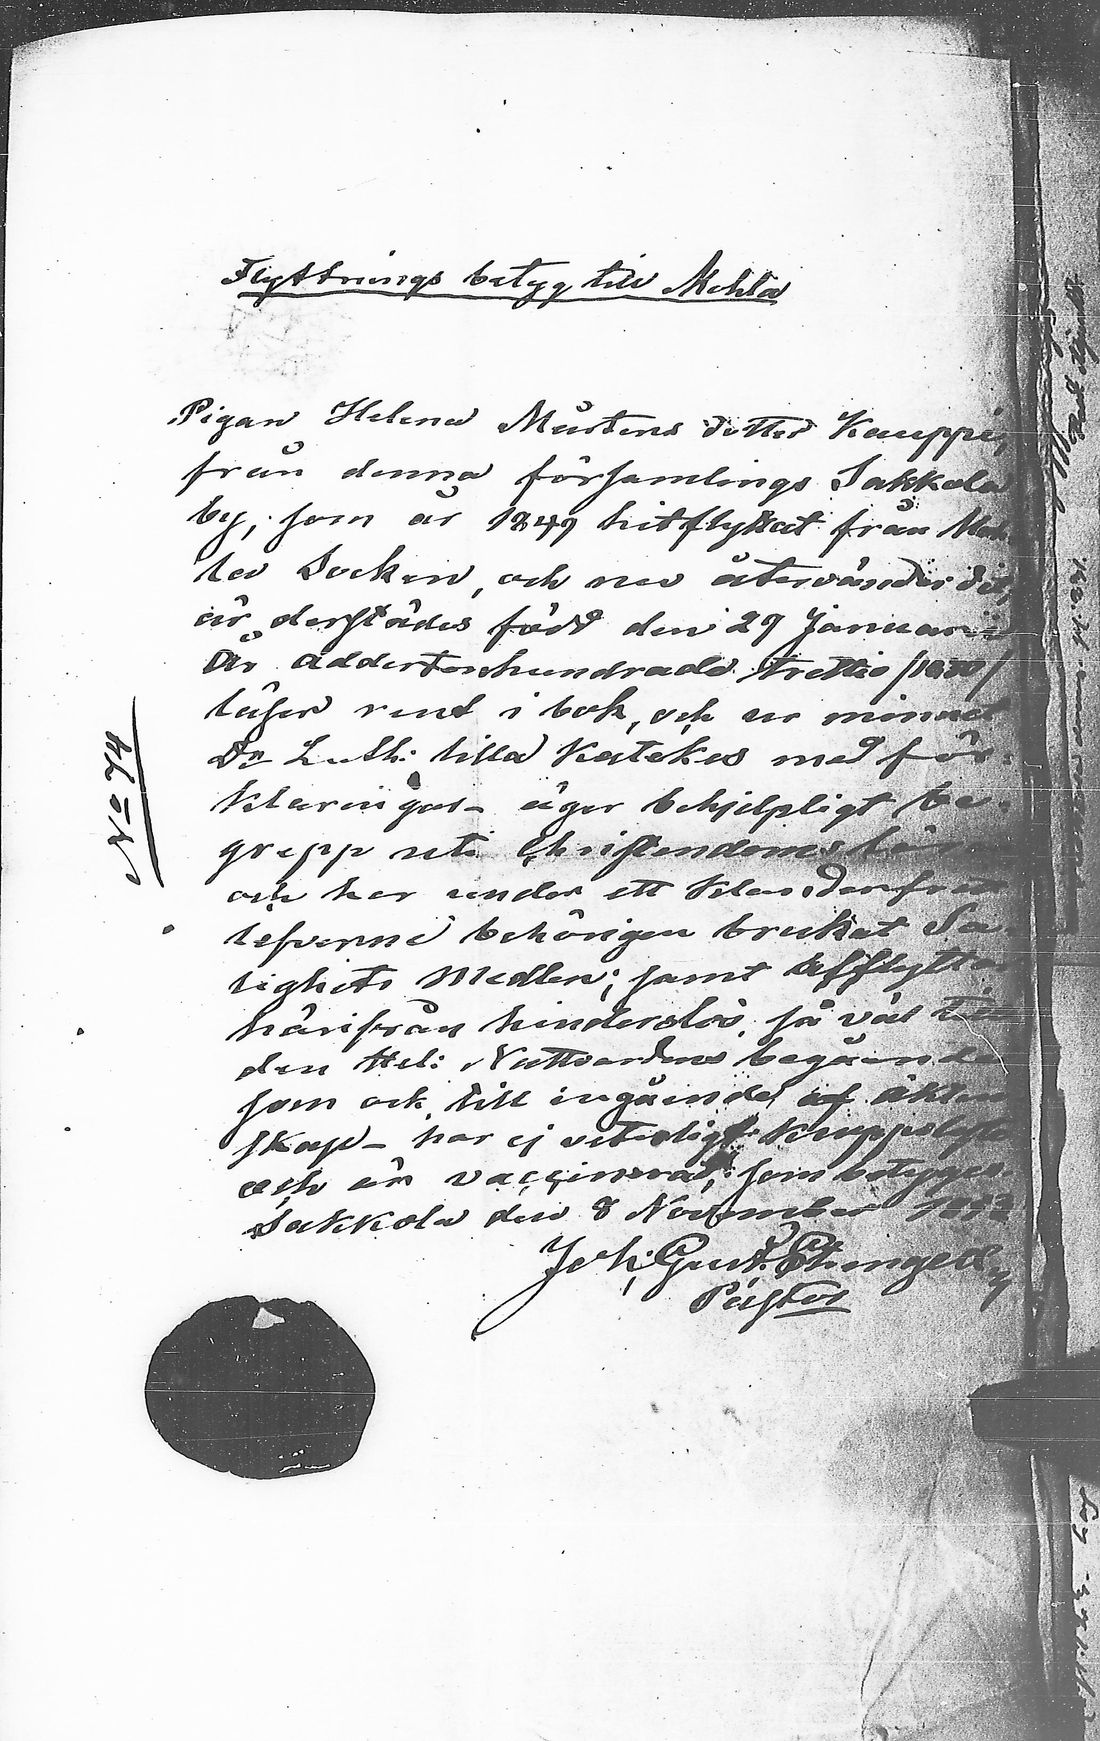 Flyttnings betyg till Mohla
Pigan Helena Mårtens dotter Kauppi,
från denna församlings Sakkola
by, som år 1849 hitflyttat från Moh
la Socken, och nu återvänder dit,
är derstädes född den 29 Januari
År Addertonhundrade trettio /1830/
läser rent i bok, och ur minnet
Dr Luth: lilla Katekes med för-
klaringar - äger behjelpligt be
grepp uti Christendoms lära
och har under ett klanderfritt
lefverne behörigen brukat Sa-
lighets Medlen; samt afflyttar
härifrån hinderslös, så väl till
den Hel: Nattvardens begående
som ock till ingående af äkten
skap - har ej veterligt koppslagts
och är vaccinerad, som betygas
Sakkola den 8 November
Joh: Gust.
Pastor
No 74